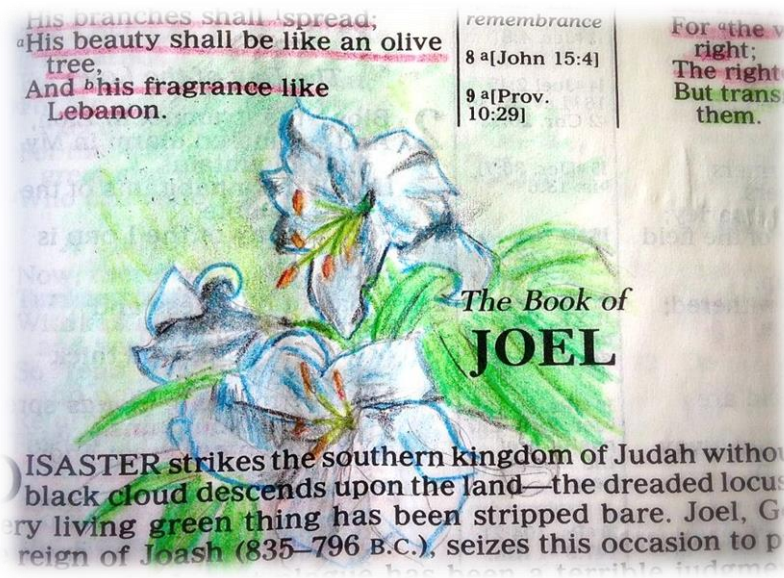 His branches shall spread;
aHis beauty shall be like an olive
tree,
And bhis fragrance like
Lebanon.
remembrance
8 a[John 15:4]
9 a[Prov.
10:29]
For athe
right;
The right
But trans
them.
The Book of
JOEL
DISASTER strikes the southern kingdom of Judah withou
black cloud descends upon the land—the dreaded locus
ery living green thing has been stripped bare. Joel, G
reign of Joash (835–796 B.C.), seizes this occasion to p